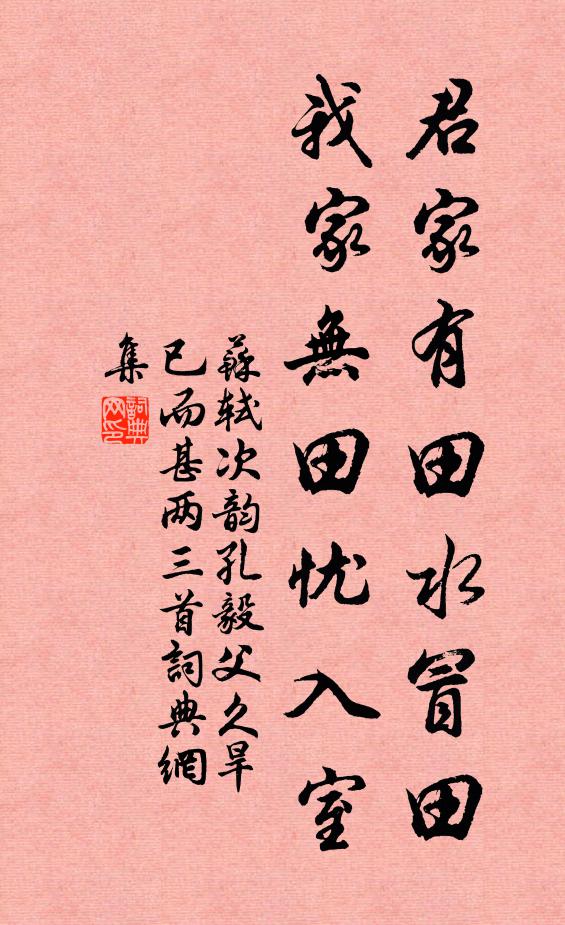 君家有田水冒田
我家無田忧入室
蘇軾次韵孔毅父久旱
已而甚两三首詞典網
集
詞典网印